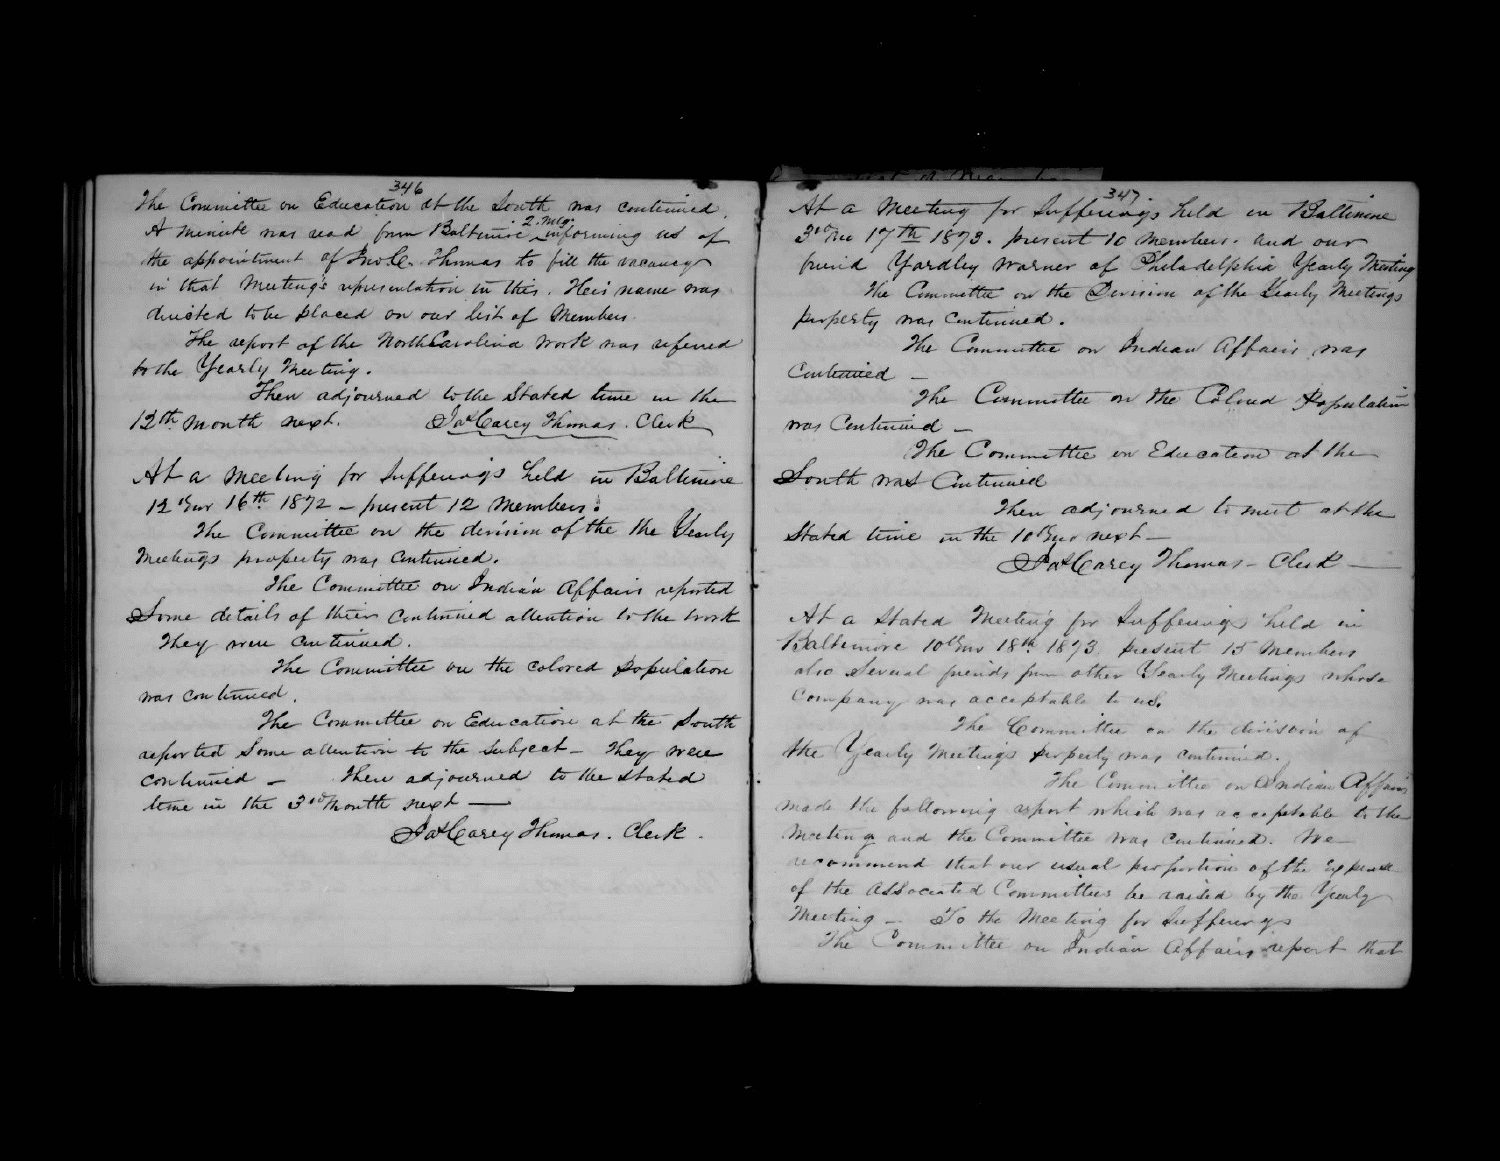 346
The Committee on Education at the South was continued.
A minute was read from Baltimore 2. Mtg. informing us of
the appointment of Jno. C. Thomas to fill the vacancy
in that Meeting's representation in this. His name was
directed to be placed on our list of Members.
The report of the North Carolina work was referred
to the Yearly Meeting.
Then adjourned to the Stated time in the
12th month next. Jas Carey Thomas. Clerk
At a Meeting for Sufferings held in Baltimore
12 mo 16th 1872 — present 12 Members.
The Committee on the division of the the Yearly
Meetings property was continued.
The Committee on Indian Affairs reported
Some details of their continued attention to the work
They were continued.
The Committee on the colored population
was continued.
The Committee on Education at the South
reported some attention to the subject — They were
continued — Then adjourned to the stated
time in the 3rd month next —
Jas Carey Thomas. Clerk.
347
At a Meeting for Sufferings held in Baltimore
3rd mo 17th 1873. present 10 members. and our
friend Yardley Warner of Philadelphia Yearly Meeting
The Committee on the Division of the Yearly Meetings
property was continued.
The Committee on Indian Affairs was
continued —
The Committee on the Colored Population
was Continued —
The Committee on Education at the
South was Continued
Then adjourned to meet at the
Stated time in the 10th mo next —
Jas Carey Thomas — Clerk —
At a Stated Meeting for Sufferings held in
Baltimore 10th mo 18th 1873. present 15 Members
also several friends from other Yearly Meetings whose
company was acceptable to us.
The Committee on the division of
the Yearly Meetings property was continued.
The Committee on Indian Affairs
made the following report which was acceptable to the
Meeting and the Committee was continued. We
recommend that our usual proportion of the expense
of the Associated Committees be raised by the Yearly
Meeting — To the Meeting for Sufferings
The Committee on Indian Affairs report that